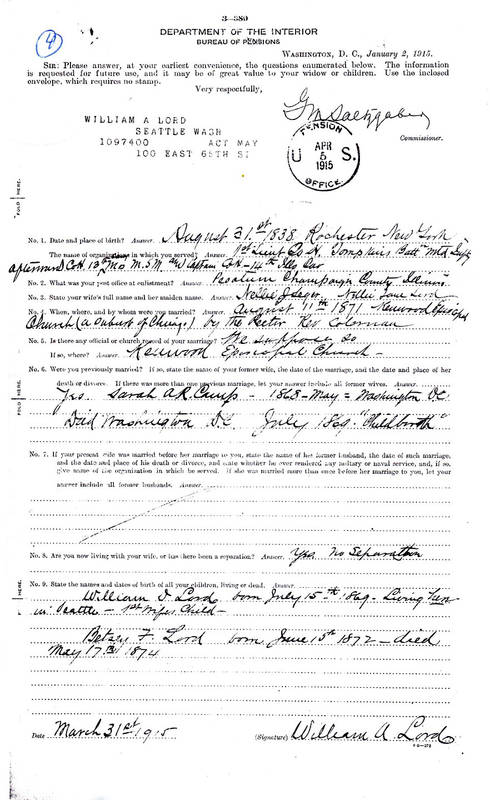 3—389
4
DEPARTMENT OF THE INTERIOR
BUREAU OF PENSIONS
WASHINGTON, D. C., January 2, 1915.
SIR: Please answer, at your earliest convenience, the questions enumerated below. The information
is requested for future use, and it may be of great value to your widow or children. Use the inclosed
envelope, which requires no stamp.
Very respectfully,
Commissioner.
WILLIAM A LORD
SEATTLE WASH
1097400 ACT MAY
100 EAST 65TH ST
PENSION
U APR S.
5
1915
OFFICE.
FOLD HERE.
No. 1. Date and place of birth? Answer. August 31st 1838. Rochester New York
The name of organizations in which you served? Answer. 1st Lieut Co H. Tompkins Batt Mtd
afterward Co H. 13th Mo M.S.M. Captain Co H - 14th Cav
No. 2. What was your post office at enlistment? Answer. Pesotum Champaign County Illinois
No. 3. State your wife's full name and her maiden name. Answer. Nellie J
No. 4. When, where, and by whom were you married? Answer. August 11th 1871. Kenwood Episcopal
Church (a suburb of Chicago) by the Rector Rev Coleman
No. 5. Is there any official or church record of your marriage? We suppose so
If so, where? Answer. Kenwood Episcopal Church -
No. 6. Were you previously married? If so, state the name of your former wife, the date of the marriage, and the date and place of her
death or divorce. If there was more than one previous marriage, let your answer include all former wives. Answer.
Yes. Sarah A.R. Camp - 1868 - May - Washington DC
Died Washington D.C. July 1869. "Childbirth"
FOLD HERE.
No. 7. If your present wife was married before her marriage to you, state the name of her former husband, the date of such marriage,
and the date and place of his death or divorce, and state whether he ever rendered any military or naval service, and, if so,
give name of the organization in which he served. If she was married more than once before her marriage to you, let your
answer include all former husbands. Answer.
No. 8. Are you now living with your wife, or has there been a separation? Answer. Yes no Separation
No. 9. State the names and dates of birth of all your children, living or dead. Answer.
William D. Lord born July 15th 1869. Living here
in Seattle - 1st Wifes Child -
Betsey F. Lord born June 15th 1872 - died
May 17th 1874
Date March 31st 1915 (Signature) William A. Lord